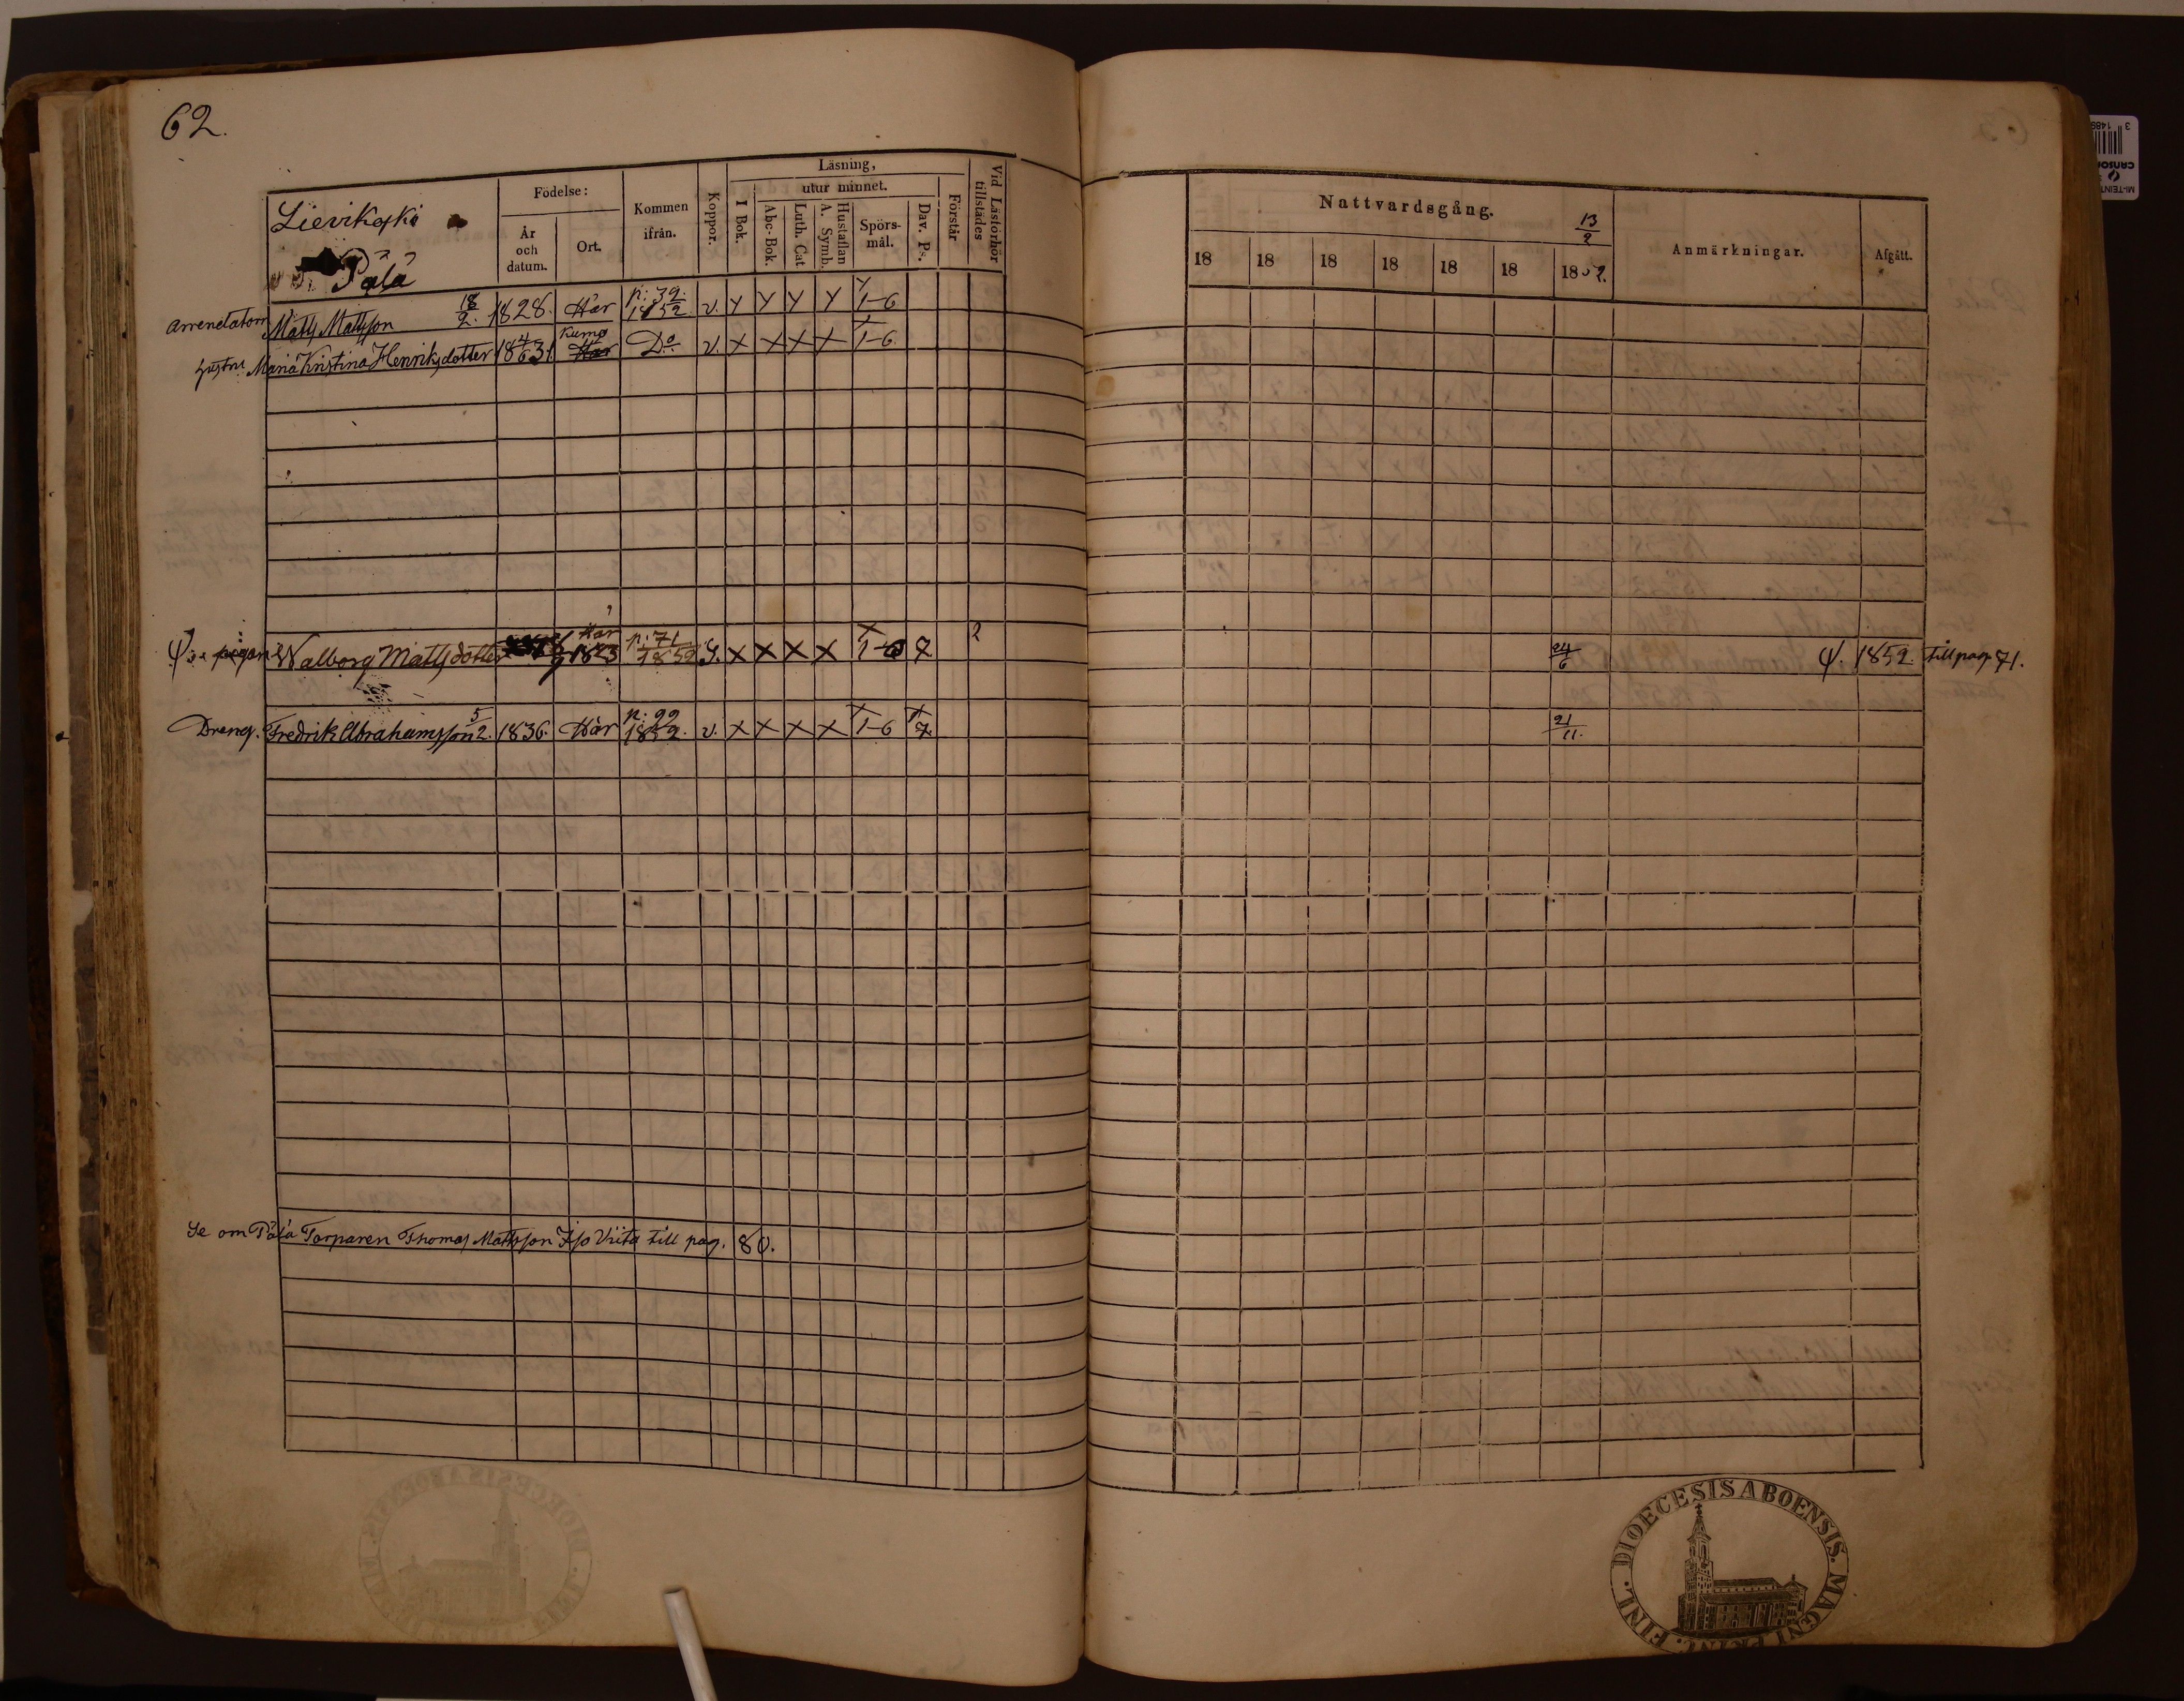 62.
Lievikoski
Pälä
Födelse:
År
och
datum.
Ort.
Kommen
ifrån.
Koppor.
Läsning,
I Bok.
utur minnet.
Abc-Bok.
Luth. Cat
Hustaflan
A. Symb.
Spörs-
mål.
Dav. Ps.
Förstår
Vid Läsförhör
tillstädes
Nattvardsgång.
13/2
18 18 18 18 18 18 1852.
Anmärkningar.
Afgått.
Arrendatorn Matts Mattsson 18/2. 1828. Här p: 39 1852 v. Y Y Y Y Y 1-6
hustru Maria Kristina Henriksdotter 4/6 1831 Kumo Här Do v. X X X X X 1-6
pigan Walborg Mattsdotter 1823 Här p: 71 1852 X X X X X 7 2 24/6 ψ. 1852. till pag 71.
Dreng. Fredrik Abrahamsson 5/2. 1836. Här p: 99 1852. v. X X X X X 1-6 X 7. 21/11.
Se om Pälä Torparen Thomas Mattsson Iso Viita till pag. 80.
FINL. DIOECESIS ABOENSIS. MAGNI PRINC.